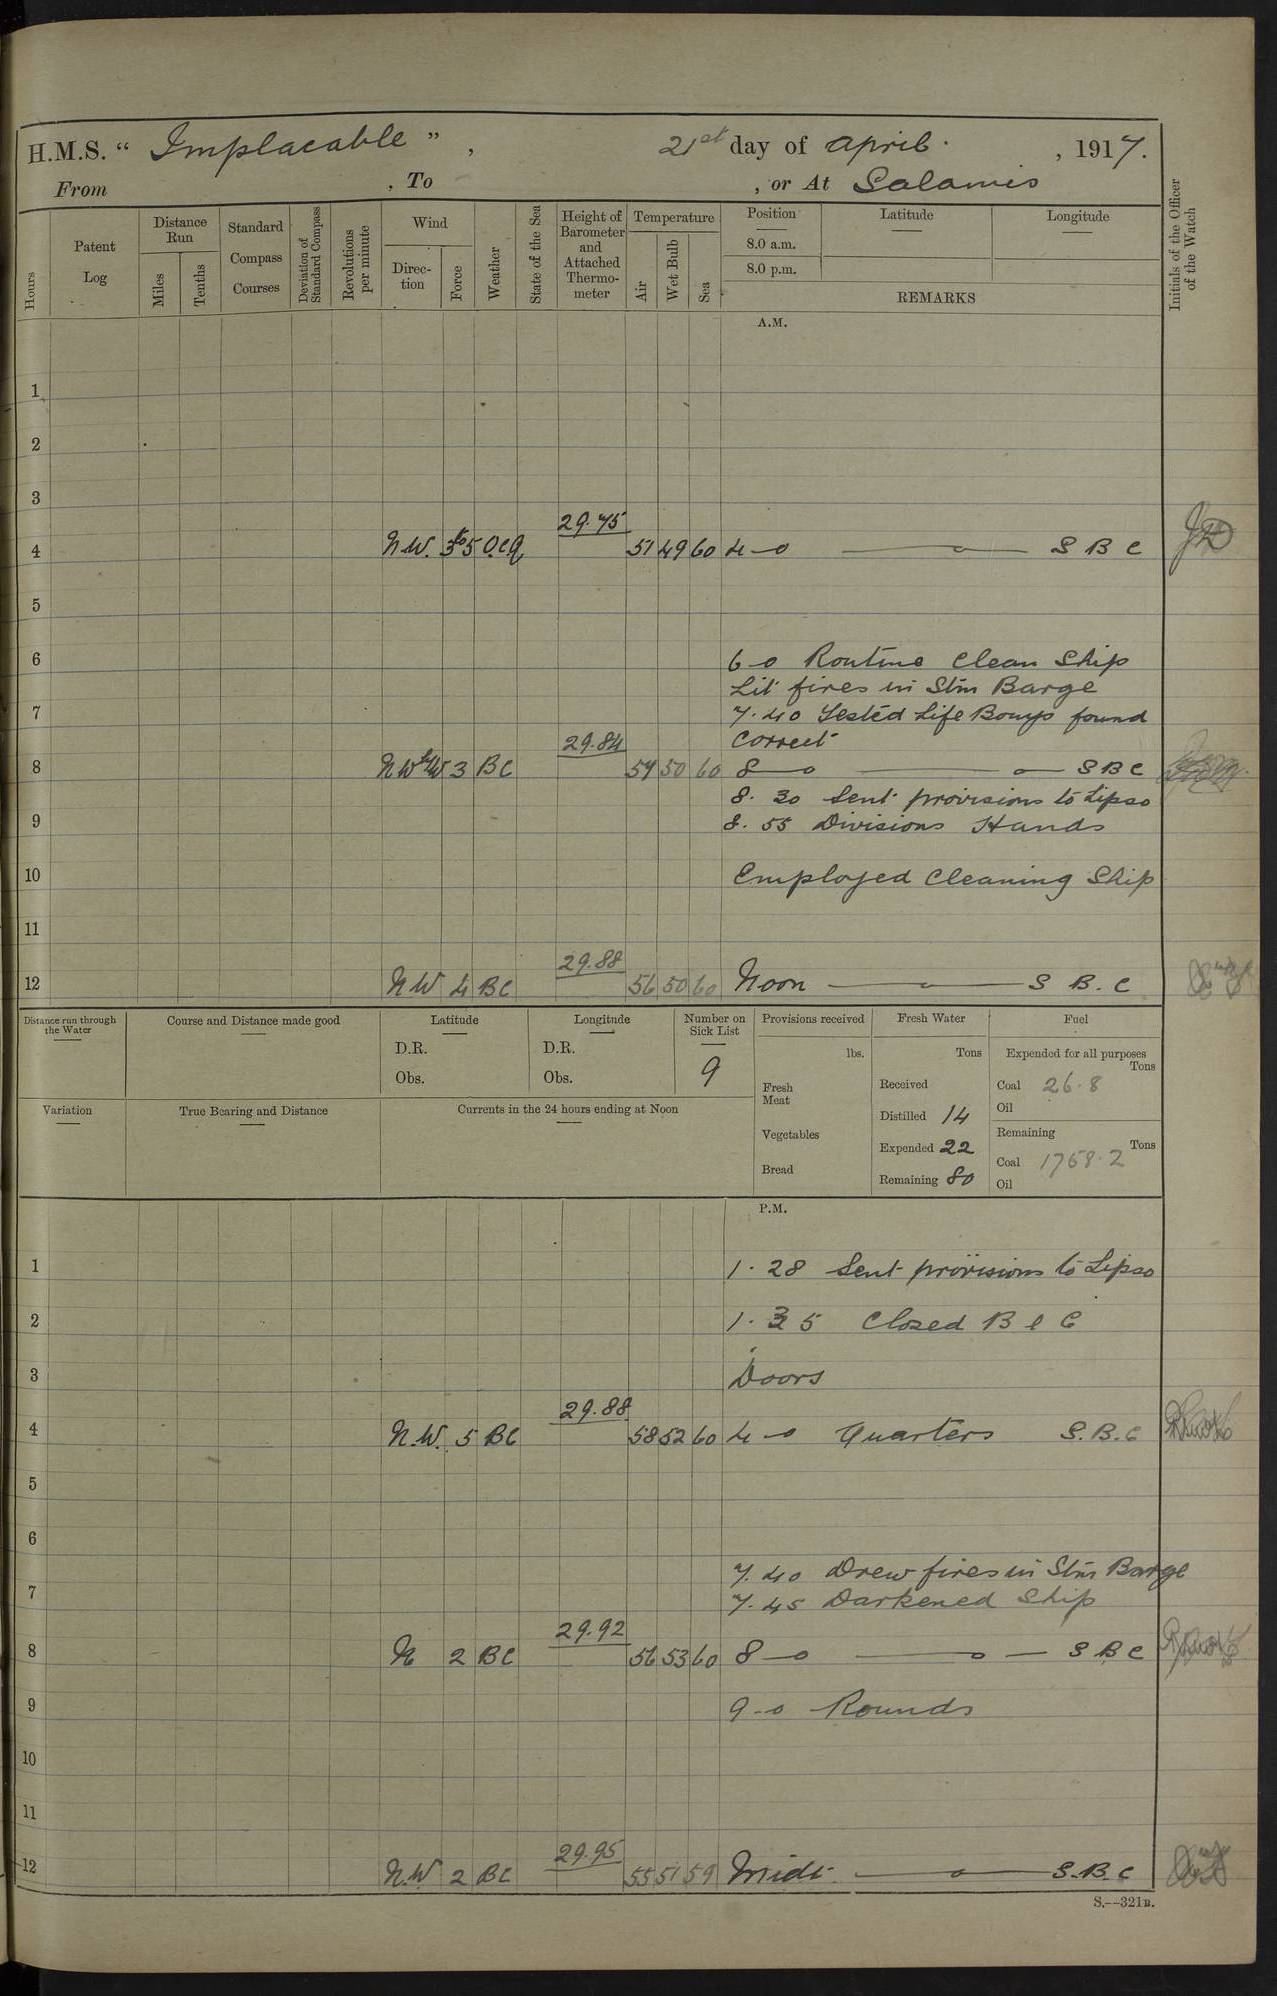 H.M.S. “ Implacable ” , 21st day of April , 1917.
From , To , or At Salamis
Hours
Patent Log
Distance Run
Miles
Tenths
Standard Compass Courses
Deviation of Standard Compass
Revolutions per minute
Wind
Direc-tion
Force
Weather
State of the Sea
Height of Barometer and Attached Thermo-meter
Temperature
Air
Wet Bulb
Sea
Position
8.0 a.m.
8.0 p.m.
Latitude
Longitude
REMARKS
Initials of the Officer of the Watch
A.M.
1
2
3
29.75
4 N.W. 3 to 5 O.C.Q 51 49 60 4-0 S B C
5
6 6-0 Routine Clean Ship
Lit fires in Stm Barge
7 7.40 Tested Life Bouys found
correct
29.84
8 NW by W 3 BC 54 50 60 8-0 S B C
8.30 Sent provisions to Lipso
9 8.55 Divisions Hands
10 Employed Cleaning Ship
11
29.88
12 NW 4 BC 56 50 60 Noon S B.C
Distance run through the Water
Course and Distance made good
Latitude
D.R.
Obs.
Longitude
D.R.
Obs.
Number on Sick List
9
Provisions received
lbs.
Fresh Meat
Vegetables
Bread
Fresh Water
Tons
Received
Distilled 14
Expended 22
Remaining 80
Fuel
Expended for all purposes
Tons
Coal 26.8
Oil
Remaining
Tons
Coal 1768.2
Oil
Variation
True Bearing and Distance
Currents in the 24 hours ending at Noon
P.M.
1 1.28 Sent provisions to Lipso
2 1.35 Closed B & C
3 Doors
29.88
4 N.W. 5 BC 58 52 60 4-0 Quarters S.B.C
5
6
7.40 Drew fires in Stm Barge
7 7.45 Darkened Ship
29.92
8 N 2 BC 56 53 60 8-0 S B C
9 9-0 Rounds
10
11
29.95
12 N.W 2 BC 55 51 59 Midt S.B.C
S.--321B.